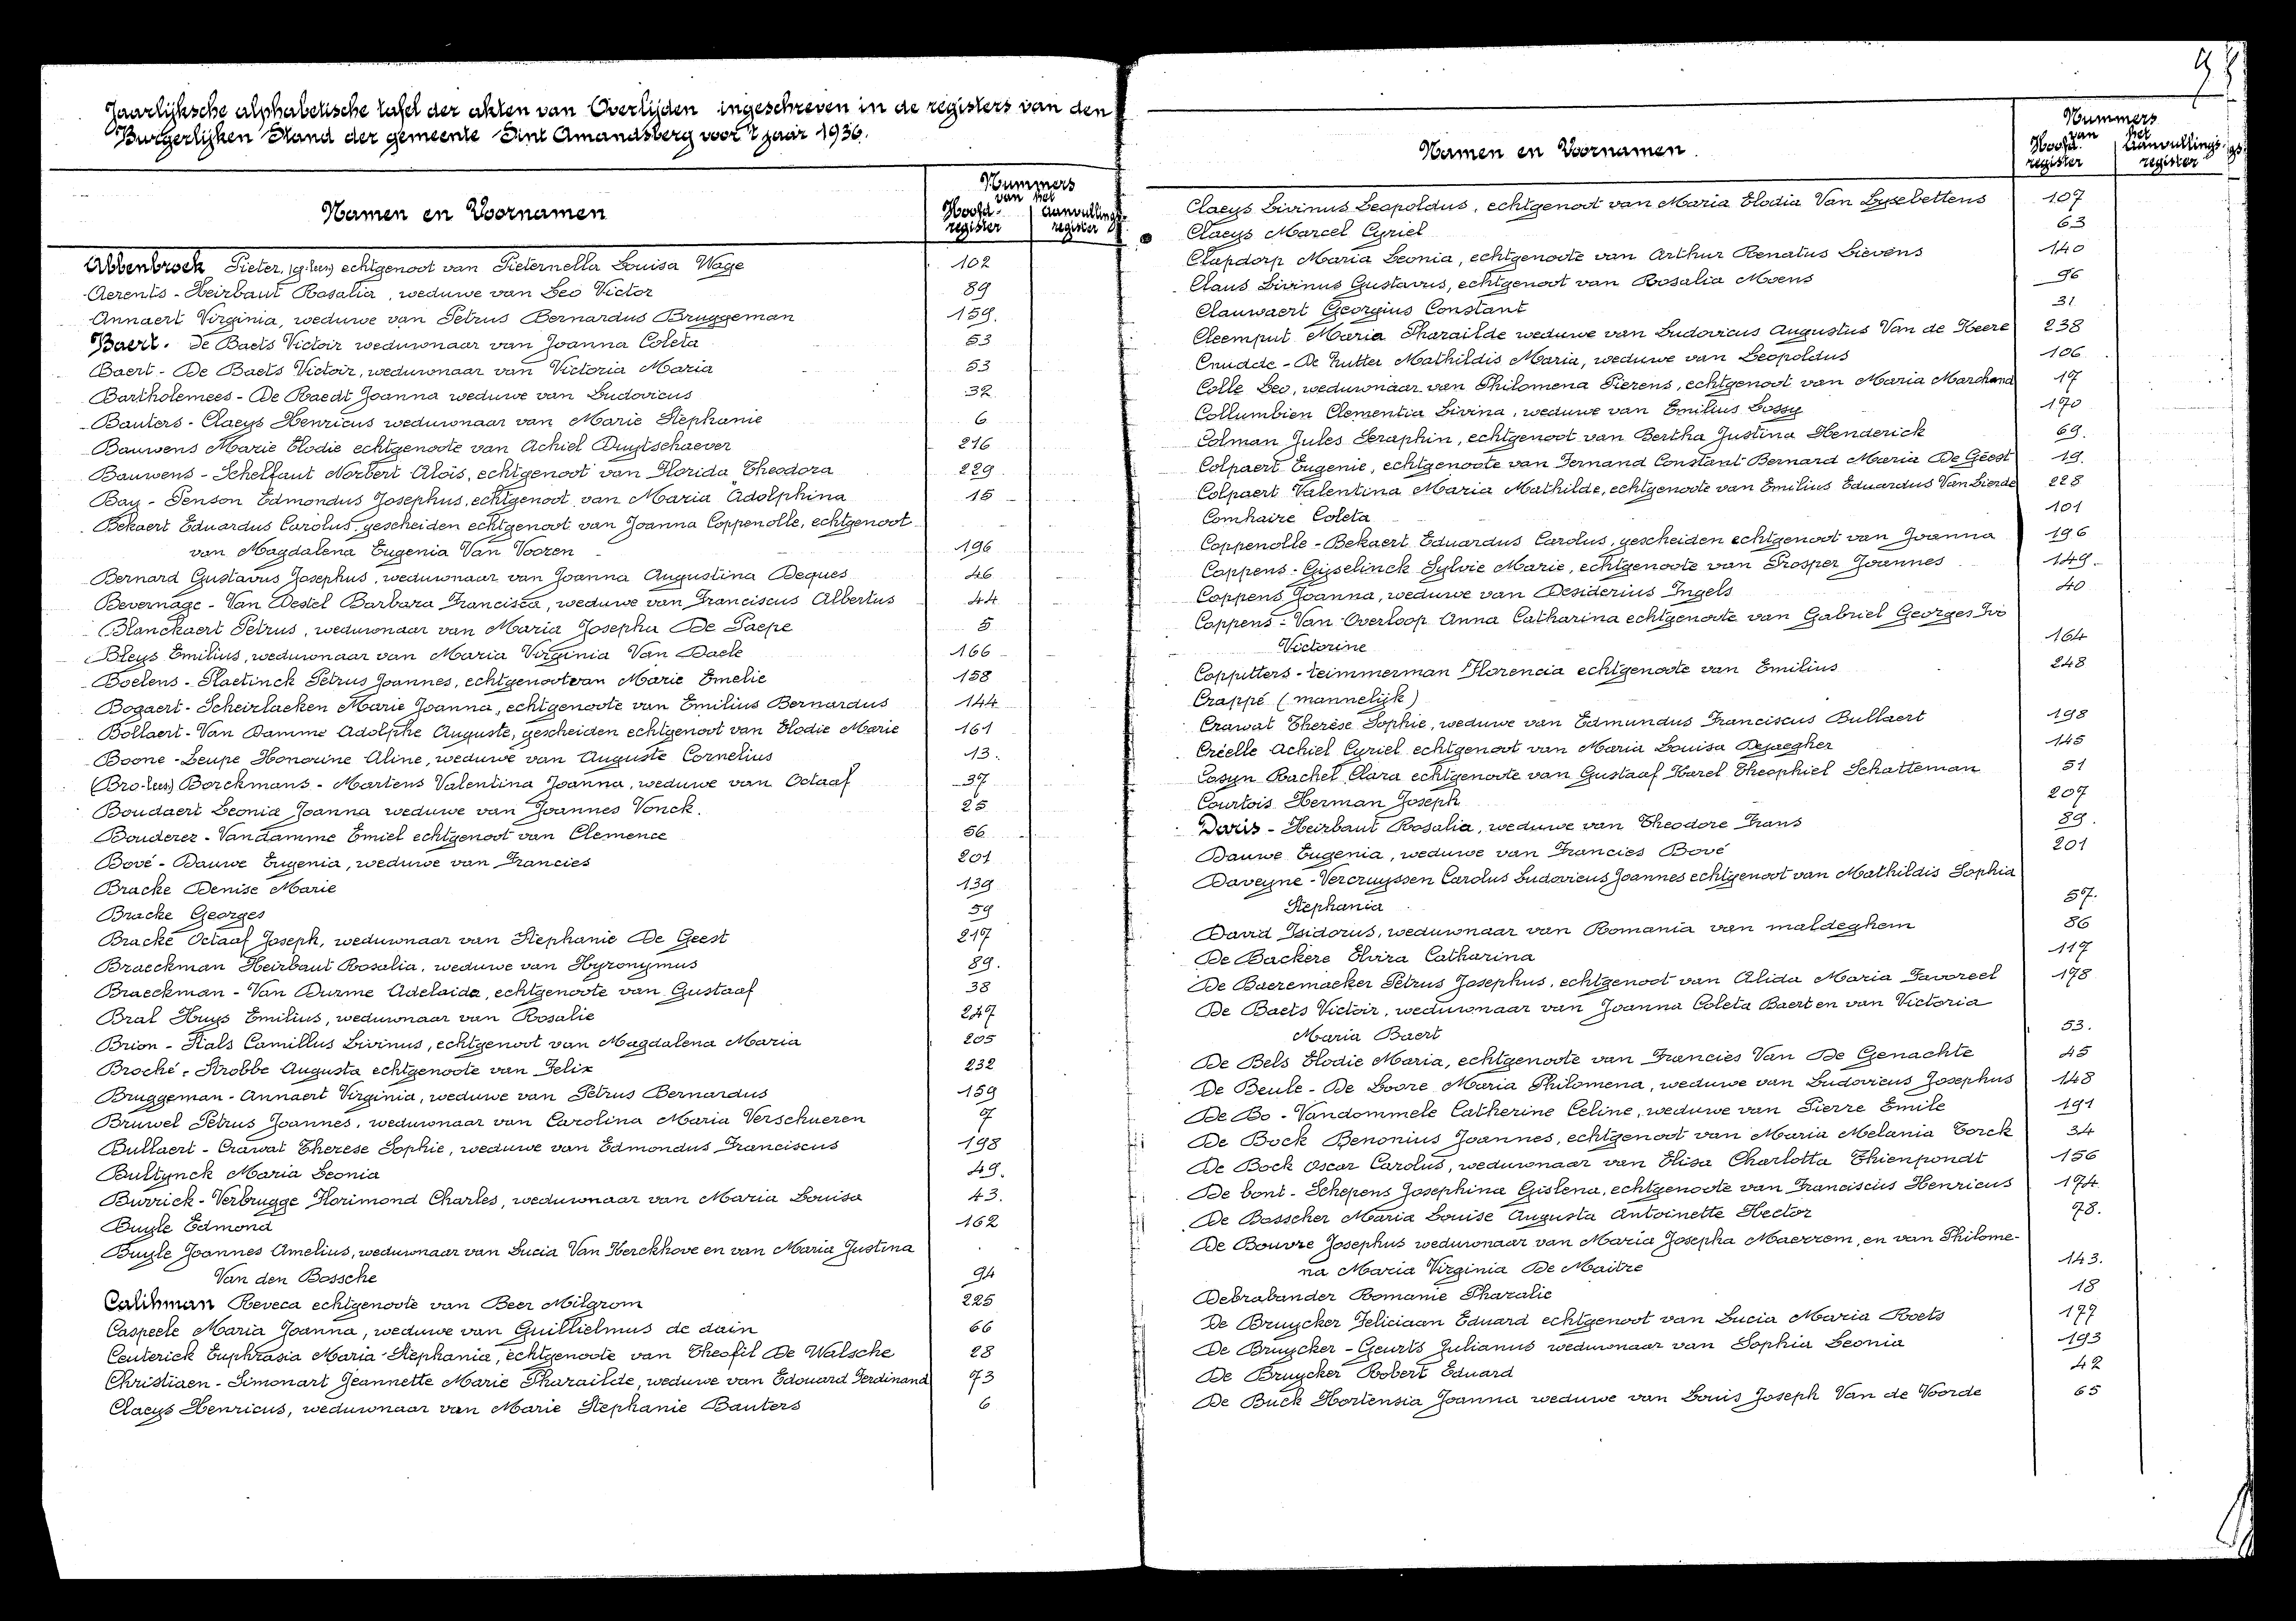 Jaarlijksche alphabetische tafel der akten van Overlijden ingeschreven in de registers van den
Burgerlijken Stand der gemeente Sint Amandsberg voor 't jaar 1936.
Namen en Voornamen
Nummers
van het
Hoofd-register
Aanvullings-register
Abbenbroek Pieter, echtgenoot van Pieternella Louisa Wage 102
Aerents - Heirbaut Rosalia, weduwe van Leo Victor 89
Annaert Virginia, weduwe van Petrus Bernardus Bruggeman 159.
Baert. de Baets Victoir weduwnaar van Joanna Coleta 53
Baert - De Baets Victoir, weduwnaar van Victoria Maria 53
Bartholemees - De Raedt Joanna weduwe van Ludovicus 32
Bauters - Claeys Henricus weduwnaar van Marie Stephanie 6
Bauwens Marie Elodie echtgenoote van Achiel Duytschaever 216
Bauwens - Schelfaut Norbert Aloïs, echtgenoot van Florida Theodora 229
Bay - Penson Edmondus Josephus, echtgenoot van Maria Adolphina 15
Bekaert Eduardus Carolus, gescheiden echtgenoot van Joanna Coppenolle, echtgenoot
van Magdalena Eugenia Van Vooren 196
Bernard Gustavus Josephus, weduwnaar van Joanna Augustina Deques 46
Bevernage - Van Destel Barbara Francisca, weduwe van Franciscus Albertus 44
Blanckaert Petrus, weduwnaar van Maria Josepha De Paepe 5
Bleys Emilius, weduwnaar van Maria Virginia Van Daele 166
Boelens - Plaetinck Petrus Joannes, echtgenoot van Marie Emelie 158
Bogaert - Scheirlaeken Marie Joanna, echtgenoote van Emilius Bernardus 144
Bollaert - Van Damme Adolphe Auguste, gescheiden echtgenoot van Elodie Marie 161
Boone - Leupe Honorine Aline, weduwe van Auguste Cornelius 13.
(Bro-lees) Borckmans - Martens Valentina Joanna, weduwe van Octaaf 37
Boudaert Leonia Joanna weduwe van Joannes Vonck. 25
Bouderez - Vandamme Emiel echtgenoot van Clemence 56
Bové - Dauwe Eugenia, weduwe van Francies 201
Bracke Denise Marie 139
Bracke Georges 59
Bracke Octaaf Joseph, weduwnaar van Stephanie De Geest 217
Braeckman Heirbaut Rosalia, weduwe van Hyronymus 89.
Braeckman - Van Durme Adelaida, echtgenoote van Gustaaf 38
Bral Huys Emilius, weduwnaar van Rosalie 247
Brion - Stals Camillus Livinus, echtgenoot van Magdalena Maria 205
Broché - Strobbe Augusta echtgenoote van Felix 232
Bruggeman - Annaert Virginia, weduwe van Petrus Bernardus 159
Bruwel Petrus Joannes, weduwnaar van Carolina Maria Verschueren 7
Bullaert - Crawat Therese Sophie, weduwe van Edmondus Franciscus 198
Bultynck Maria Leonia 49.
Burrick - Verbrugge Florimond Charles, weduwnaar van Maria Louisa 43.
Buyle Edmond 162
Buyle Joannes Amelius, weduwnaar van Lucia Van Kerckhove en van Maria Justina
Van den Bossche 94
Calihman Reveca echtgenoote van Beer Milgrom 225
Caspeele Maria Joanna, weduwe van Guillielmus de dain 66
Ceuterick Euphrasia Maria Stephania, echtgenoote van Theofil De Walsche 28
Christiaen - Simonart Jeannette Marie Pharaïlde, weduwe van Edouard Ferdinand 73
Claeys Henricus, weduwnaar van Marie Stephanie Bauters 6
Namen en Voornamen.
Nummers
van het
Hoofd-register
Aanvullings-register
Claeys Livinus Leopoldus, echtgenoot van Maria Elodia Van Lysebettens 107
Claeys Marcel Cyriel 63
Clapdorp Maria Leonia, echtgenoote van Arthur Renatus Lievens 140
Claus Livinus Gustavus, echtgenoot van Rosalia Moens 96
Clauwaert Georgius Constant 31
Cleemput Maria Pharaïlde weduwe van Ludovicus Augustus Van de Keere 238
Cnudde - De Rutter Mathildis Maria, weduwe van Leopoldus 106
Colle Leo, weduwnaar van Philomena Pierens, echtgenoot van Maria Marchand 17
Collumbien Clementia Livina, weduwe van Emilius Lossy 170
Colman Jules Seraphin, echtgenoot van Bertha Justina Henderick 69.
Colpaert Eugenie, echtgenoote van Fernand Constant Bernard Maria De Geest 19.
Colpaert Valentina Maria Mathilde, echtgenoote van Emilius Eduardus Van Lierde 228
Comhaire Coleta 101
Coppenolle - Bekaert Eduardus Carolus, gescheiden echtgenoot van Joanna 196
Coppens - Gyselinck Sylvie Marie, echtgenoote van Prosper Joannes 149.
Coppens Joanna, weduwe van Desiderius Ingels 40
Coppens - Van Overloop Anna Catharina echtgenoote van Gabriel Georges Ivo
Victorine 164
Coppitters - teimmerman Florencia echtgenoote van Emilius 248
Crappé (mannelijk)
Crawat Therèse Sophie, weduwe van Edmundus Franciscus Bullaert 198
Créelle Achiel Cyriel echtgenoot van Maria Louisa Dejaegher 145
Cosyn Rachel Clara echtgenoote van Gustaaf Karel Theophiel Schatteman 51
Courtois Herman Joseph 207
Daris - Heirbaut Rosalia, weduwe van Theodore Frans 89.
Dauwe Eugenia, weduwe van Francies Bové 201
Daveyne - Vercruyssen Carolus Ludovicus Joannes echtgenoot van Mathildis Sophia
Stephania 57.
David Isidorus, weduwnaar van Romania van maldeghem 86
De Backere Elvira Catharina 117
De Baeremaeker Petrus Josephus, echtgenoot van Alida Maria Favoreel 178
De Baets Victoir, weduwnaar van Joanna Coleta Baert en van Victoria
Maria Baert 53.
De Bels Elodie Maria, echtgenoote van Francies Van De Genachte 45
De Beule - De Loore Maria Philomena, weduwe van Ludovicus Josephus 148
De Bo - Vandommele Catherine Celine, weduwe van Pierre Emile 191
De Bock Benonius Joannes, echtgenoot van Maria Melania Torck 34
De Bock Oscar Carolus, weduwnaar van Elisa Charlotta Thienpondt 156
De bont - Schepens Josephina Gislena, echtgenoote van Franciscus Henricus 174
De Bosscher Maria Louise Augusta Antoinette Hector 78.
De Bouvre Josephus weduwnaar van Maria Josepha Maerrem, en van Philome-
na Maria Virginia De Maitre 143.
Debrabander Romanie Pharalie 18
De Bruycker Feliciaan Eduard echtgenoot van Lucia Maria Roets 177
De Bruycker - Geurts Julianus weduwnaar van Sophia Leonia 193
De Bruycker Robert Eduard 42
De Buck Hortensia Joanna weduwe van Louis Joseph Van de Voorde 65